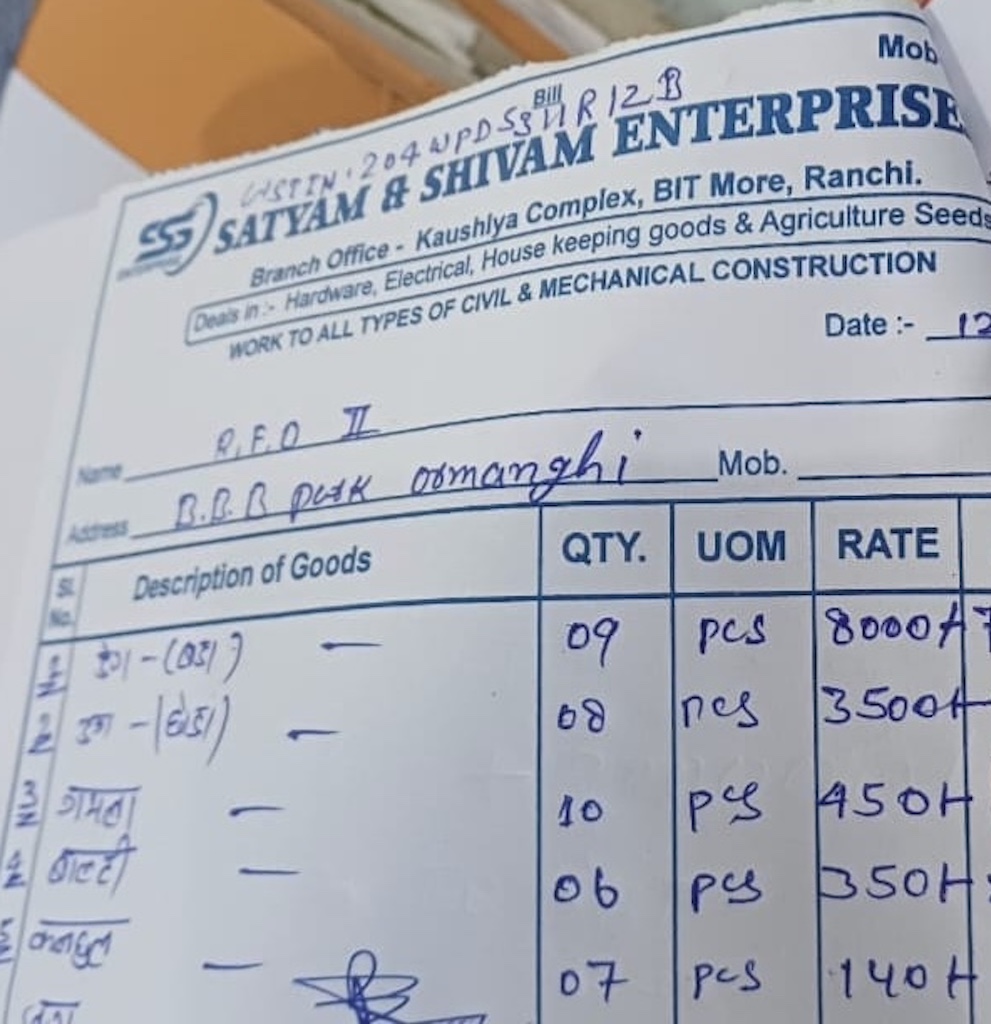 Mob
Bill
SATYAM & SHIVAM ENTERPRISE
Branch Office - Kaushlya Complex, BIT More, Ranchi.
Deals in :- Hardware, Electrical, House keeping goods & Agriculture Seeds
WORK TO ALL TYPES OF CIVIL & MECHANICAL CONSTRUCTION
Date :- 12
Name R.F.O II
Address B.B.B park ormanghi Mob.
Sl. No. Description of Goods QTY. UOM RATE
1 09 pcs 8000/-
2 08 pcs 3500/-
3 गमला — 10 pcs 450/-
4 बाल्टी — 06 pcs 350/-
5 — 07 pcs 140/-